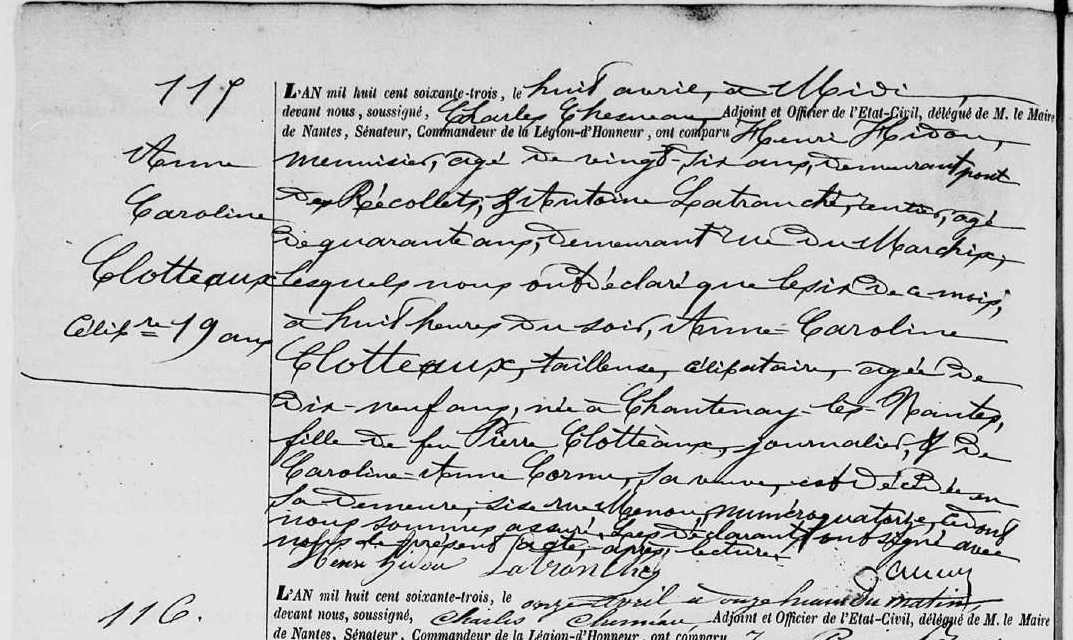 117
L'AN mil huit cent soixante-trois, le huit avril, à Midi,
devant nous, soussigné, Charles Chesneau, Adjoint et Officier de l'Etat-Civil, délégué de M. le Maire
de Nantes, Sénateur, Commandeur de la Légion-d'Honneur, ont comparu Henri Hidou,
Anne
Caroline
Clotteaux
Célibre 19 ans
menuisier, agé de vingt-six ans, demeurant pont
des Récollets, & Antoine Latranche, agé
de quarante ans, demeurant rue du Marchix,
lesquels nous ont déclaré que le six de ce mois,
à huit heures du soir, Anne-Caroline
Clotteaux, tailleuse, célibataire, agée de
dix-neuf ans, née à Chantenay-les-Nantes,
fille de feu Pierre Clotteaux, journalier, & de
Caroline-Anne Cornu, sa veuve, est décédée en
sa demeure, sise rue Menou, numéro quatorze, ce dont
nous sommes assuré. Les déclarants ont signé avec
nous le présent acte, après lecture.
Henri Hidou Latranche
116.
L'AN mil huit cent soixante-trois, le onze avril à onze heures du matin,
devant nous, soussigné, Charles Chesneau, Adjoint et Officier de l'Etat-Civil, délégué de M. le Maire
de Nantes, Sénateur, Commandeur de la Légion-d'Honneur, ont comparu